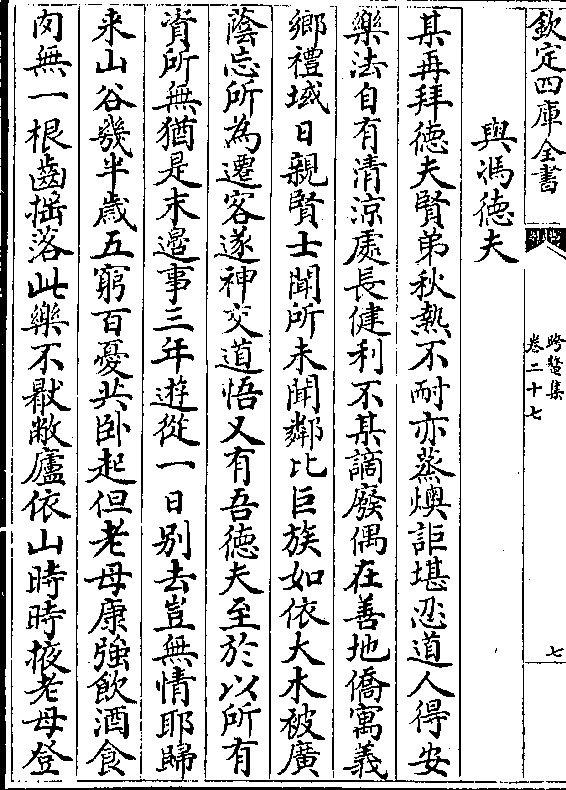 欽定四庫全書
跨鼇集
卷二十七
七
與馮徳夫
某再拜徳夫賢弟秋熱不耐亦蒸燠詎堪忍道人得安
樂法自有清涼處長健利不某謫廢偶在善地僑寓義
鄉禮域日親賢士聞所未聞鄰比巨族如依大木被廣
蔭忘所為遷客遂神交道悟又有吾徳夫至於以所有
資所無猶是末邊事三年遊從一日别去豈無情耶歸
来山谷幾半歳五窮百憂共卧起但老母康強飲酒食
肉無一根齒揺落此樂不厭敝廬依山時時掖老母登